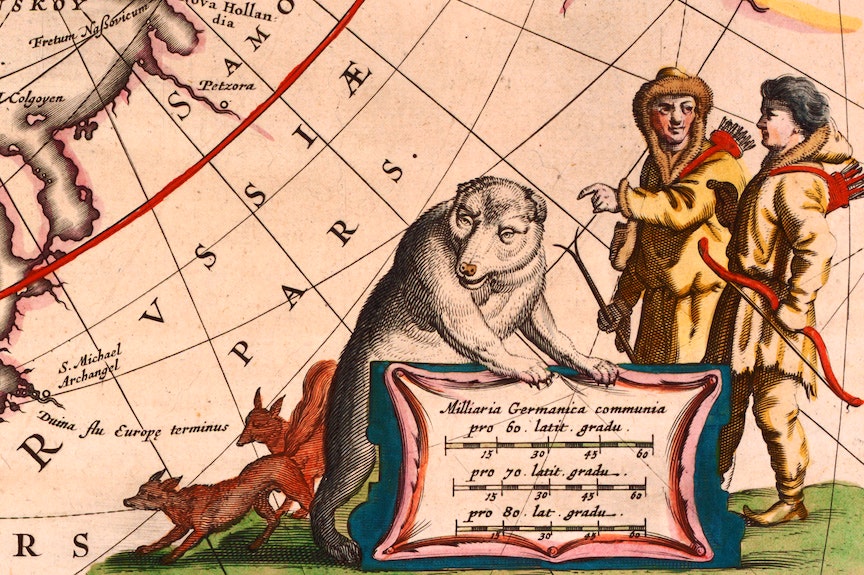 NSKOY
ova Hollan
dia
Fretum Naßovicum
Petzora
Colgoyen
SAMO
RVSSIÆ
PARS
S. Michael
Archangel
Duina flu Europę terminus
R
RS
Milliaria Germanica communia
pro 60. latit. gradu.
15 30 45 60
pro 70. latit. gradu.
15 30 45 60
pro 80. lat. gradu.
15 30 45 60